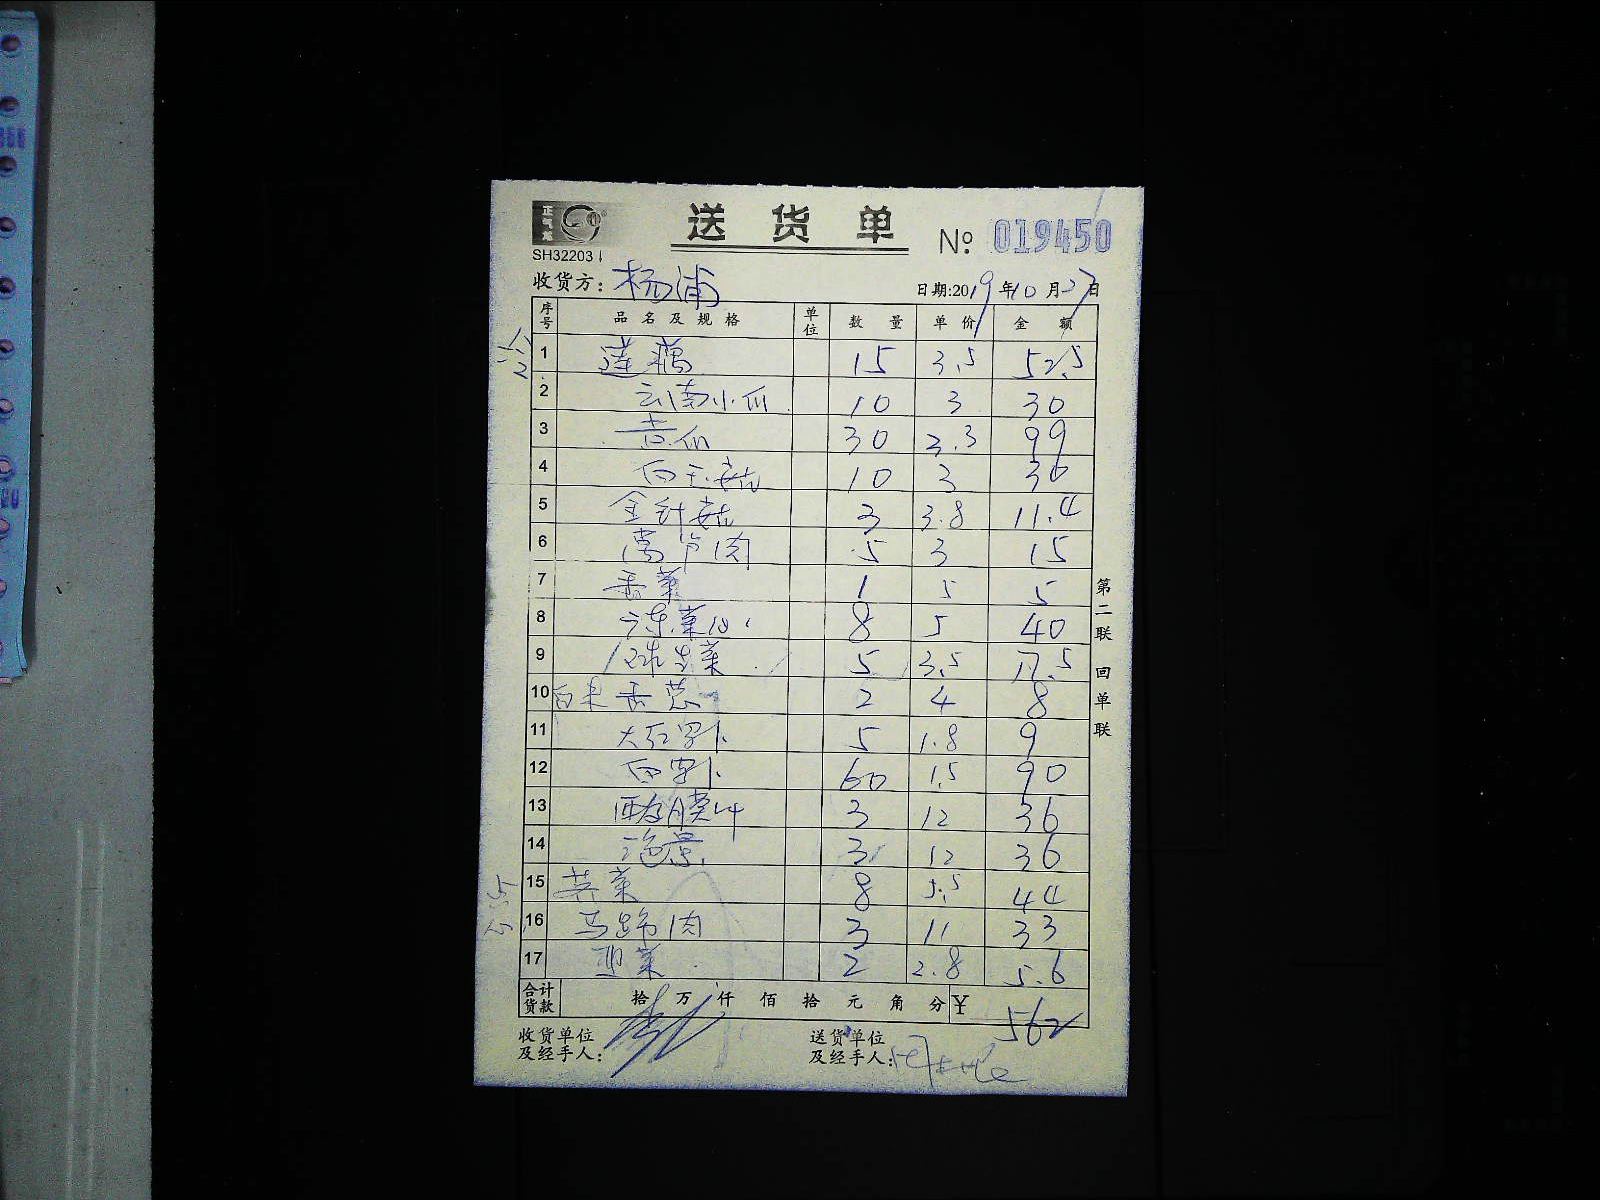 正气
送货单
№ 019450
SH32203
收货方: 杨浦
日期:2019年10月27日
序号 品名及规格 单位 数量 单价 金额
1 莲藕 15 3.5 52.5
2 云南小瓜 10 3 30
3 黄瓜 30 3.3 99
4 白玉菇 10 3 30
5 金针菇 3 3.8 11.4
6 莴笋肉 5 3 15
7 香菜 1 5 5
8 广东菜心 8 5 40
9 球生菜 5 3.5 17.5
10 香葱 2 4 8
11 大红罗卜 5 1.8 9
12 白罗卜 60 1.5 90
13 3 12 36
14 3 12 36
15 荠菜 8 5.5 44
16 马蹄肉 3 11 33
17 韭菜 2 2.8 5.6
合计货款 拾 万 仟 佰 拾 元 角 分 ¥ 562
收货单位及经手人:
送货单位及经手人:
第二联 回单联